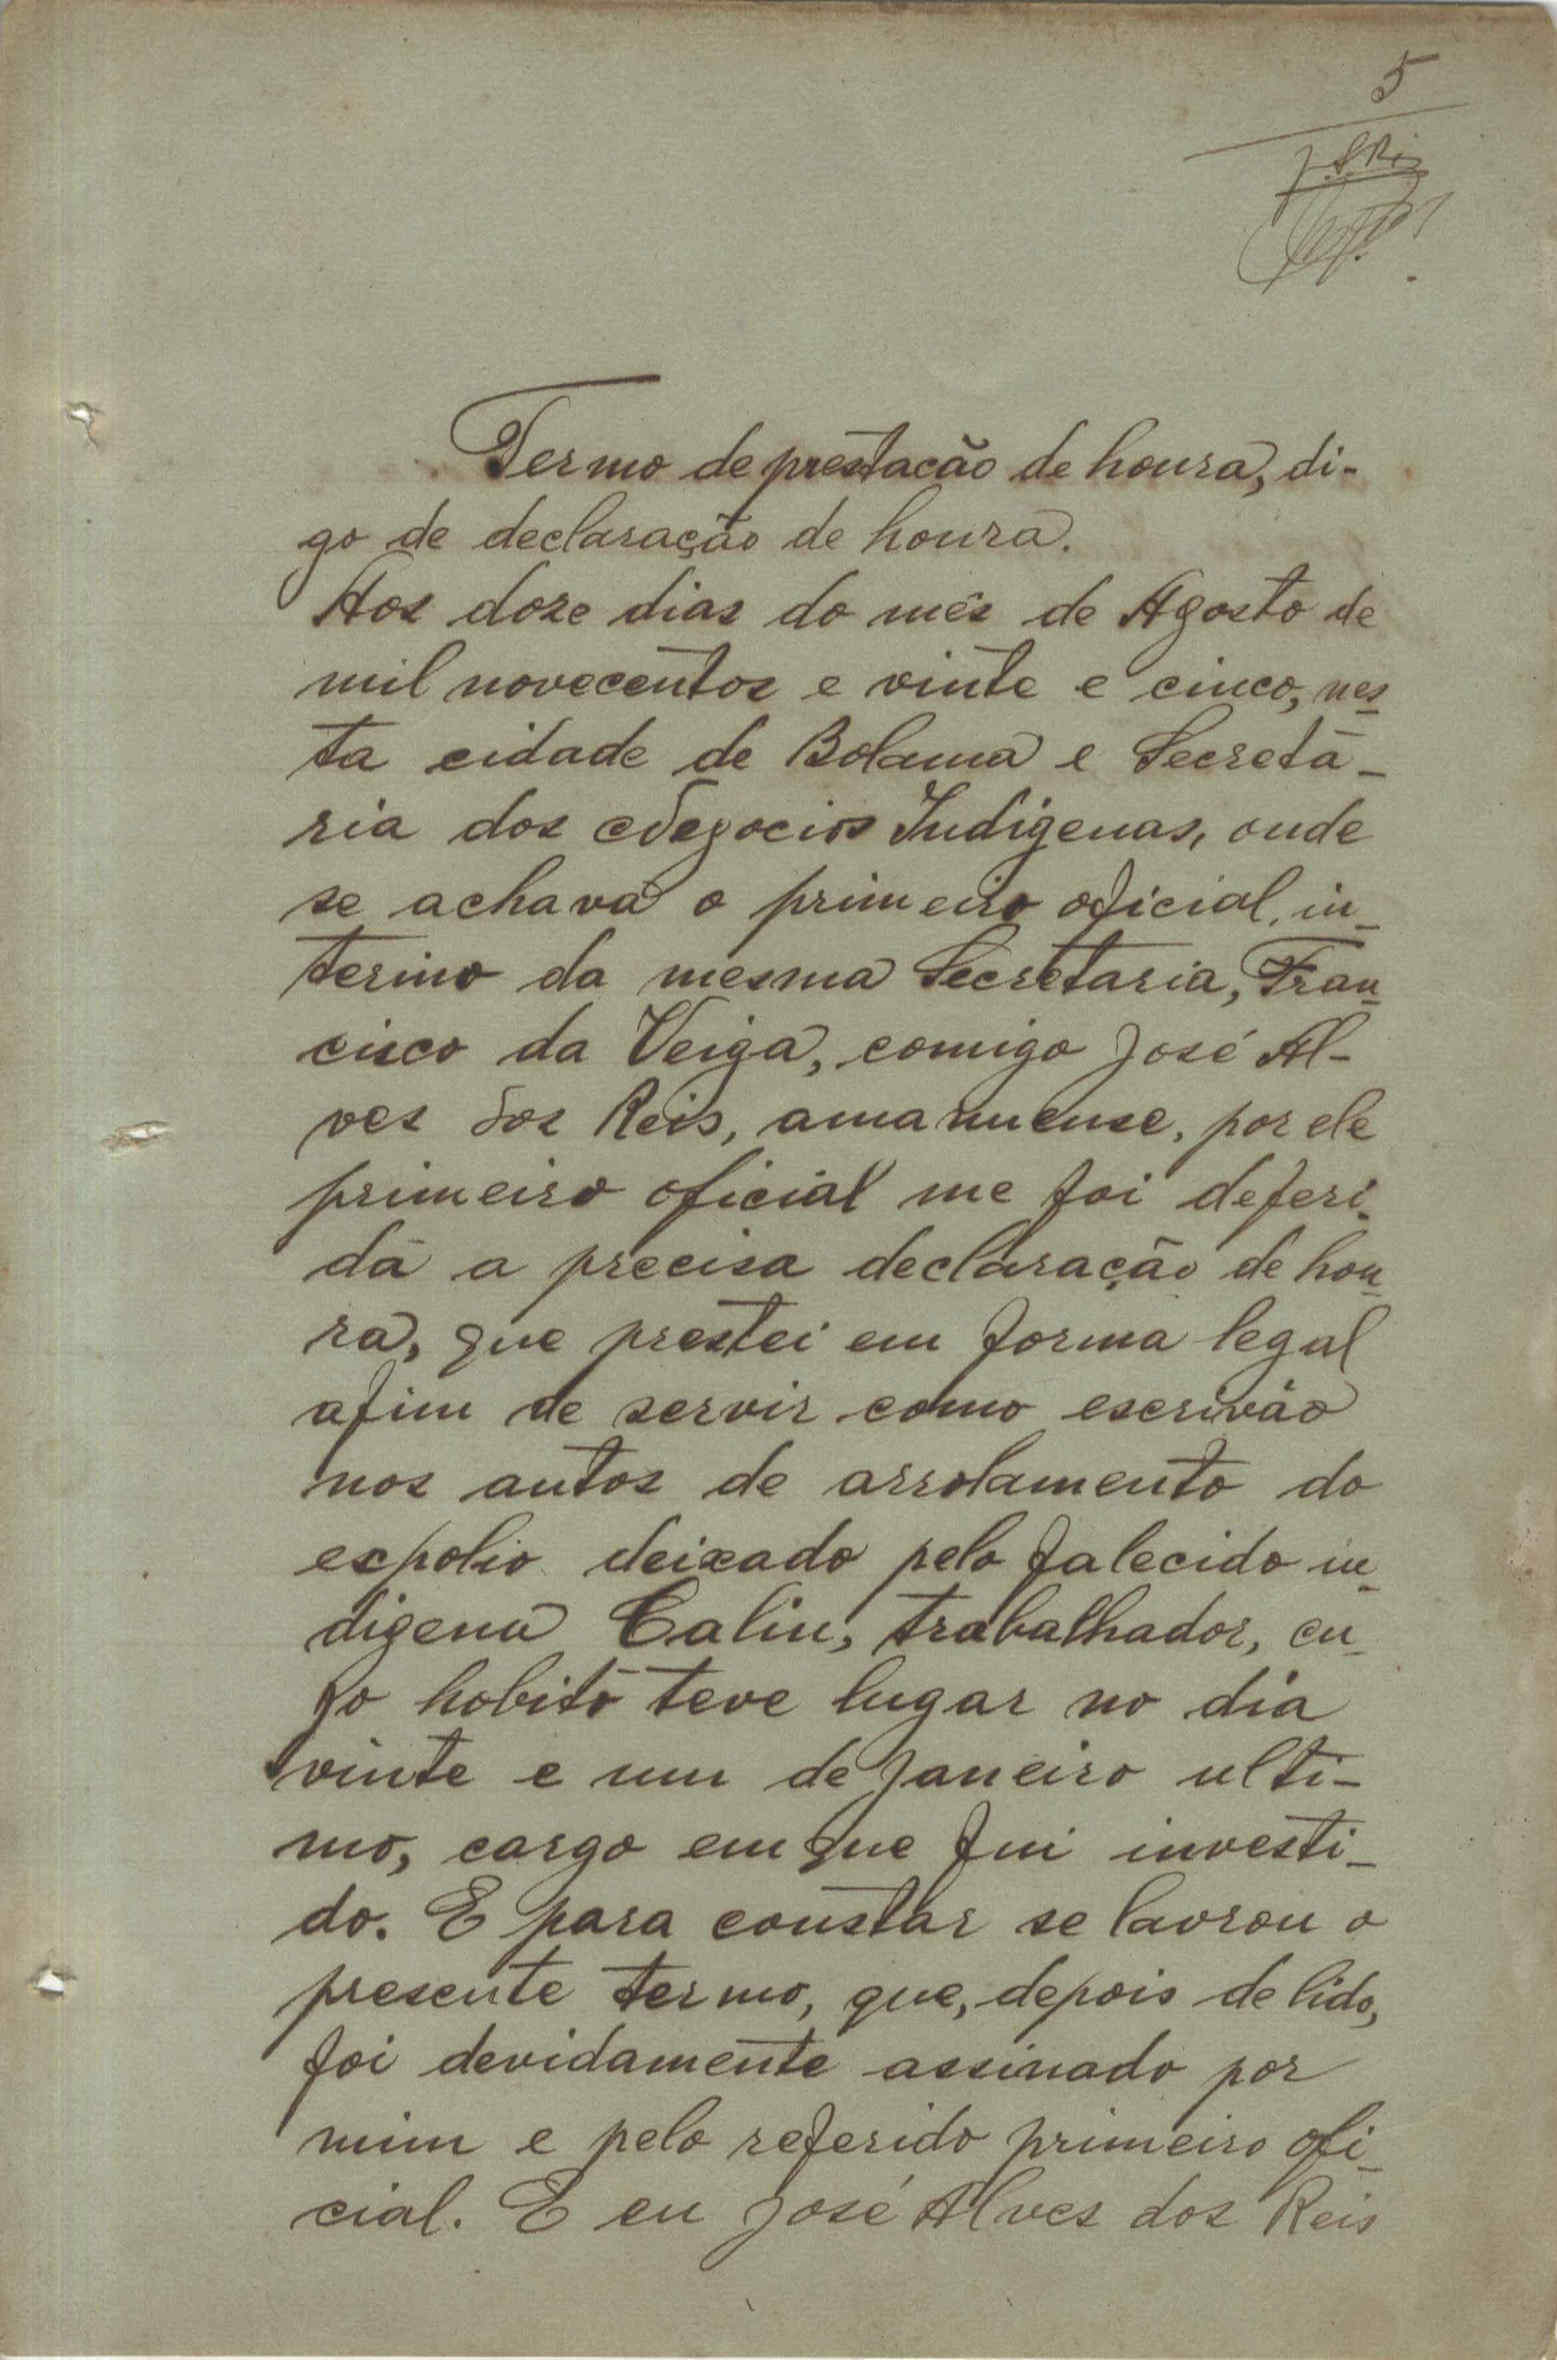 5
Termo de prestacão de honra, di-
go de declaração de honra.
Aos doze dias do mês de Agosto de
mil novecentos e vinte e cinco, nes-
ta cidade de Bolama e Secretá-
ria dos Negocios Indigenas, onde
se achava o primeiro oficial, in-
terino da mesma Secretaria, Fran-
cisco da Veiga, comigo José Al-
ves dos Reis, amanuense, por ele
primeiro oficial me foi deferi-
da a precisa declaração de hon-
ra, que prestei em forma legal
afim de servir como escrivão
nos autos de arrolamento do
expolio deixado pelo falecido in-
digena Calin, trabalhador, cu-
jo hobito teve lugar no dia
vinte e um de Janeiro ulti-
mo, cargo em que fui investi-
do. E para constar se lavrou o
presente termo, que, depois de lido,
foi devidamente assinado por
mim e pelo referido primeiro ofi-
cial. E eu José Alves dos Reis